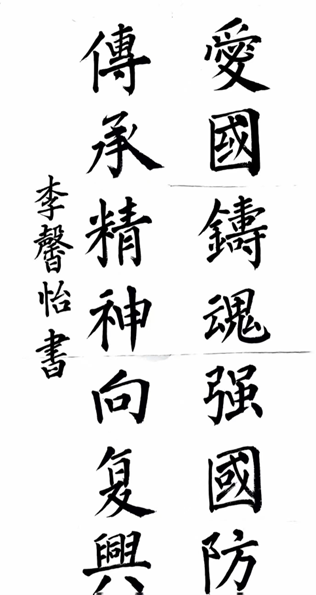 愛國鑄魂强國防
傳承精神向复興
李馨怡書